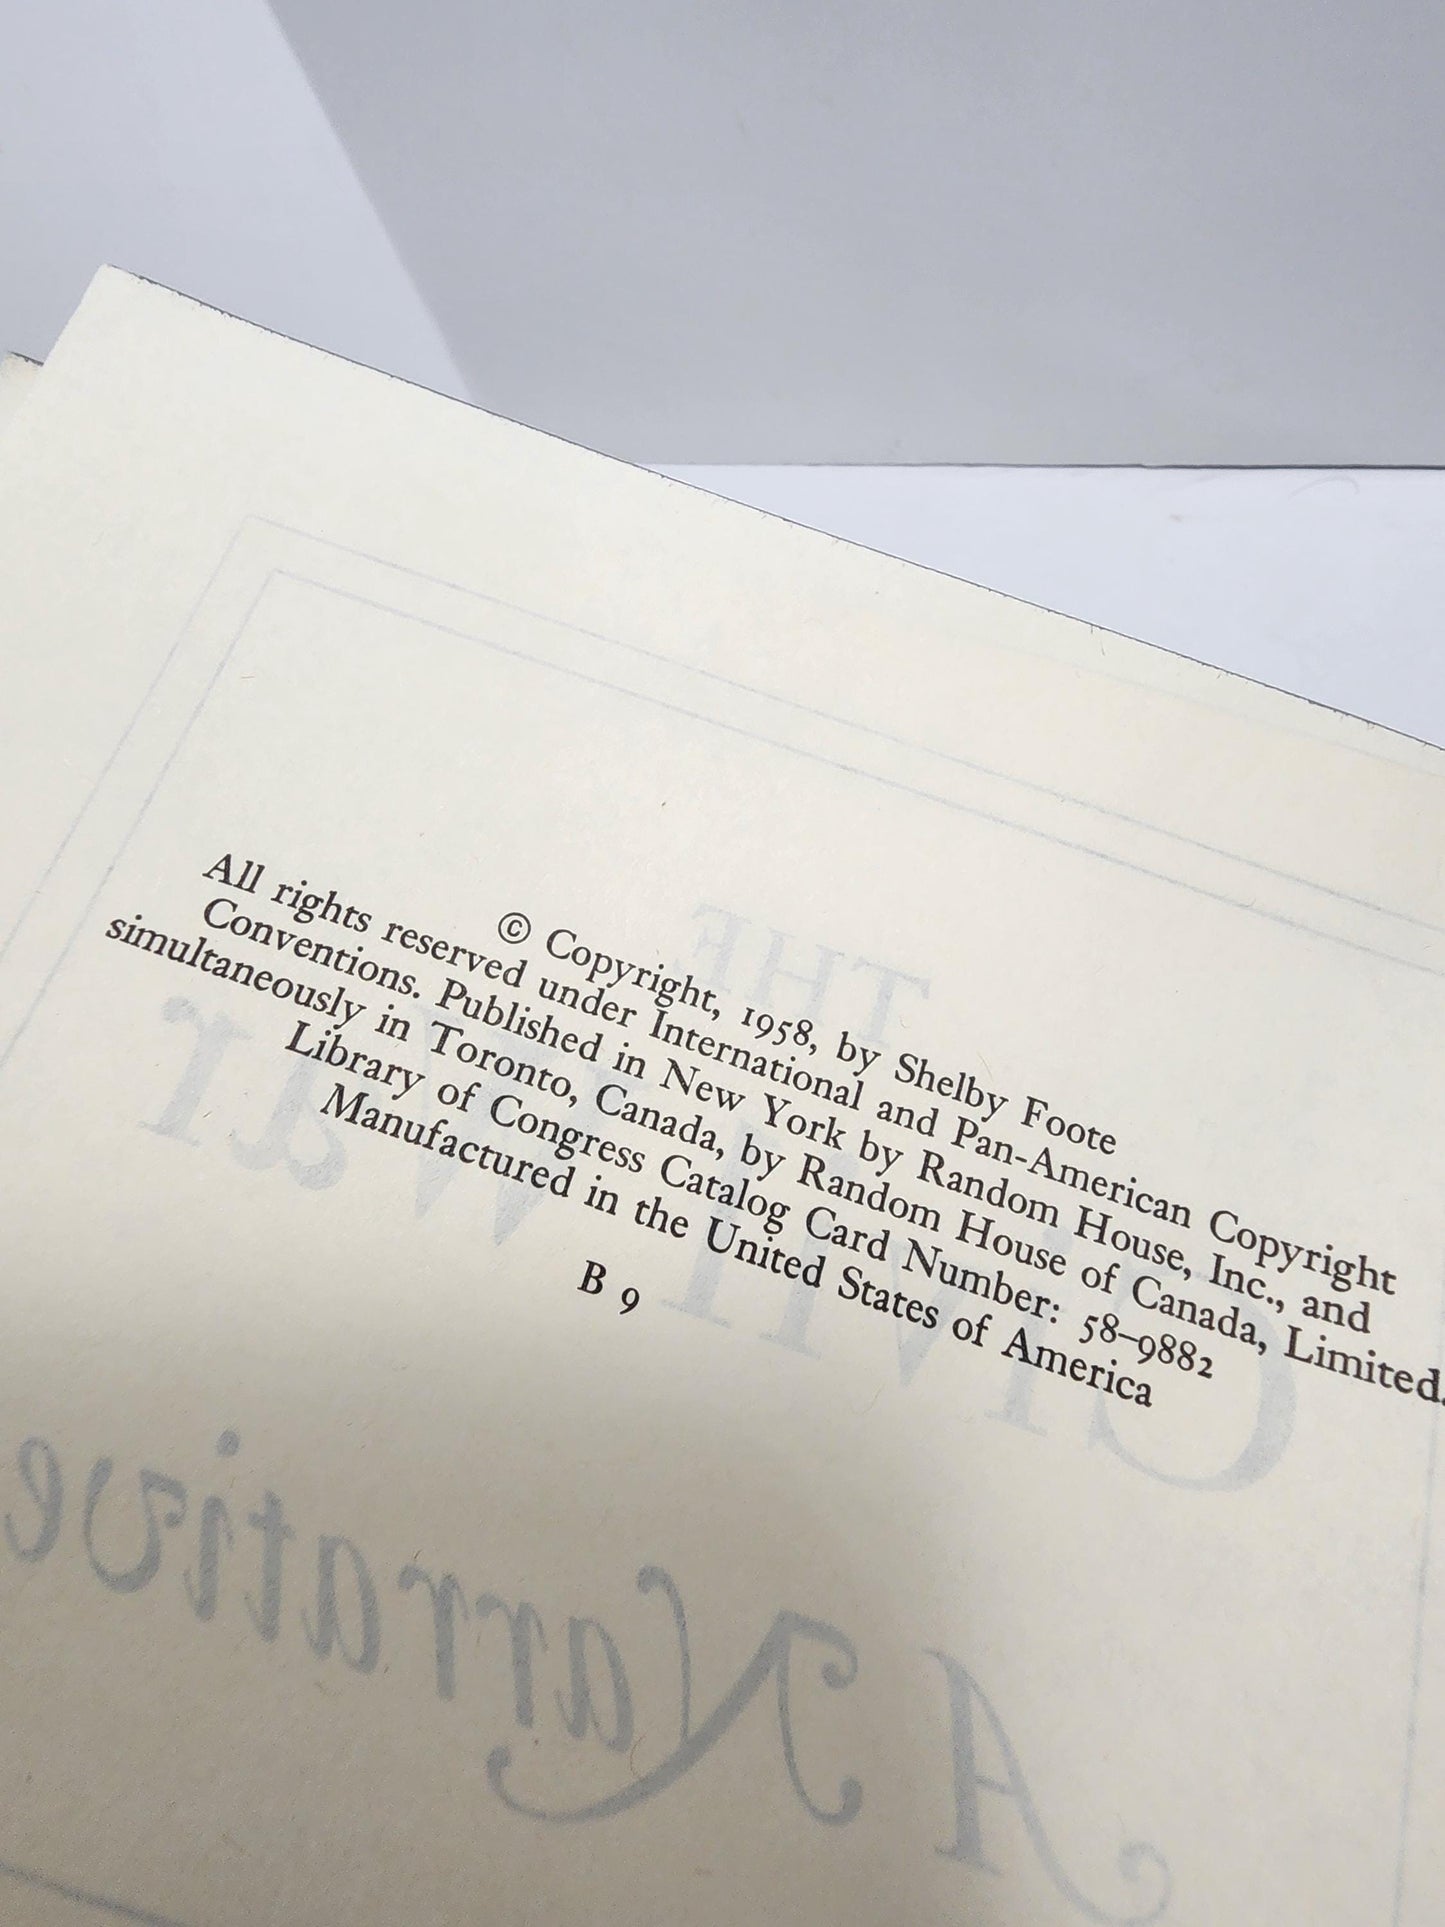 © Copyright, 1958, by Shelby Foote
All rights reserved under International and Pan-American Copyright
Conventions. Published in New York by Random House, Inc., and
simultaneously in Toronto, Canada, by Random House of Canada, Limited.
Library of Congress Catalog Card Number: 58–9882
Manufactured in the United States of America
B 9
THE
Civil War
A Narrative